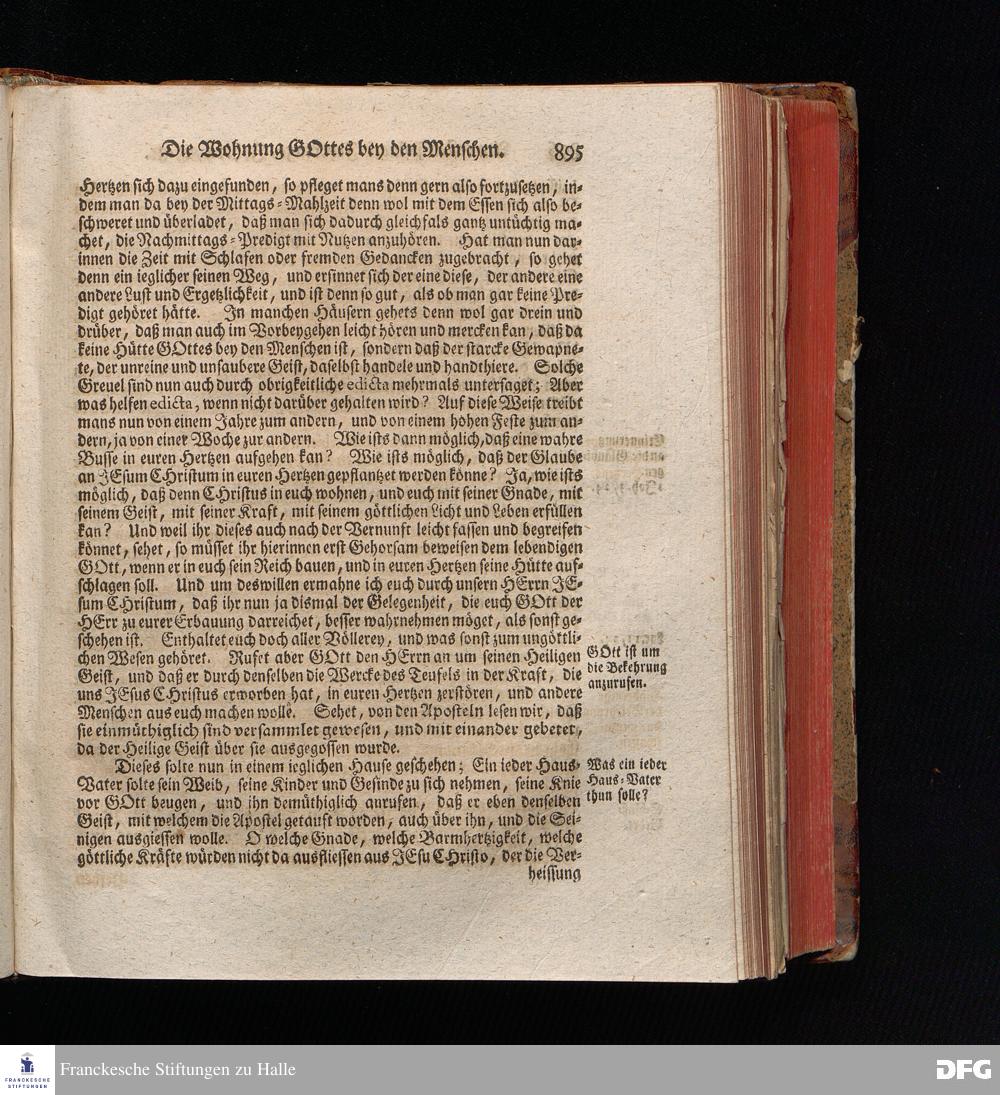 Die Wohnung GOttes bey den Menschen. 895
Hertzen sich dazu eingefunden, so pfleget mans denn gern also fortzusetzen, in-
dem man da bey der Mittags-Mahlzeit denn wol mit dem Essen sich also be-
schweret und überladet, daß man sich dadurch gleichfals gantz untüchtig ma-
chet, die Nachmittags-Predigt mit Nutzen anzuhören. Hat man nun dar-
innen die Zeit mit Schlafen oder fremden Gedancken zugebracht, so gehet
denn ein ieglicher seinen Weg, und ersinnet sich der eine diese, der andere eine
andere Lust und Ergetzlichkeit, und ist denn so gut, als ob man gar keine Pre-
digt gehöret hätte. In manchen Häusern gehets denn wol gar drein und
drüber, daß man auch im Vorbeygehen leicht hören und mercken kan, daß da
keine Hütte GOttes bey den Menschen ist, sondern daß der starcke Gewapne-
te, der unreine und unsaubere Geist, daselbst handele und handthiere. Solche
Greuel sind nun auch durch obrigkeitliche edicta mehrmals untersaget; Aber
was helfen edicta, wenn nicht darüber gehalten wird? Auf diese Weise treibt
mans nun von einem Jahre zum andern, und von einem hohen Feste zum an-
dern, ja von einer Woche zur andern. Wie ists dann möglich, daß eine wahre
Busse in euren Hertzen aufgehen kan? Wie ists möglich, daß der Glaube
an JEsum CHristum in euren Hertzen gepflantzet werden könne? Ja, wie ists
möglich, daß denn CHristus in euch wohnen, und euch mit seiner Gnade, mit
seinem Geist, mit seiner Kraft, mit seinem göttlichen Licht und Leben erfüllen
kan? Und weil ihr dieses auch nach der Vernunft leicht fassen und begreifen
könnet, sehet, so müsset ihr hierinnen erst Gehorsam beweisen dem lebendigen
GOtt, wenn er in euch sein Reich bauen, und in euren Hertzen seine Hütte auf-
schlagen soll. Und um deswillen ermahne ich euch durch unsern HErrn JE-
sum CHristum, daß ihr nun ja dismal der Gelegenheit, die euch GOtt der
HErr zu eurer Erbauung darreichet, besser wahrnehmen möget, als sonst ge-
schehen ist. Enthaltet euch doch aller Völlerey, und was sonst zum ungöttli-
chen Wesen gehöret. Rufet aber GOtt den HErrn an um seinen Heiligen
Geist, und daß er durch denselben die Wercke des Teufels in der Kraft, die
uns JEsus CHristus erworben hat, in euren Hertzen zerstören, und andere
Menschen aus euch machen wolle. Sehet, von den Aposteln lesen wir, daß
sie einmüthiglich sind versammlet gewesen, und mit einander gebetet,
da der Heilige Geist über sie ausgegossen wurde.
GOtt ist um
die Bekehrung
anzurufen.
Dieses solte nun in einem ieglichen Hause geschehen; Ein ieder Haus-
Vater solte sein Weib, seine Kinder und Gesinde zu sich nehmen, seine Knie
vor GOtt beugen, und ihn demüthiglich anrufen, daß er eben denselben
Geist, mit welchem die Apostel getauft worden, auch über ihn, und die Sei-
nigen ausgiessen wolle. O welche Gnade, welche Barmhertzigkeit, welche
göttliche Kräfte würden nicht da ausfliessen aus JEsu CHristo, der die Ver-
heissung
Was ein ieder
Haus-Vater
thun solle?
FRANCKESCHE
STIFTUNGEN
Franckesche Stiftungen zu Halle
DFG